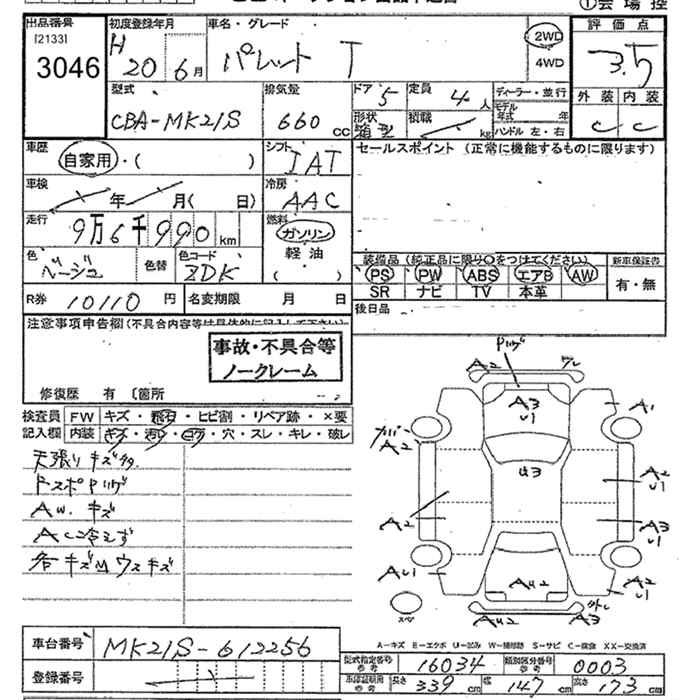 ①会場控
出品番号 初度登録年月 車名・グレード 2WD 評価点
[2133] H 20 6月 パレット T 4WD 3.5
3046
型式 排気量 ドア 5 定員 4 人 ディーラー・並行 外装 内装
CBA-MK21S 660 cc 形状 箱型 積載 kg モデル年式 年 C C
ハンドル 左・右
車歴 シフト セールスポイント (正常に機能するものに限ります)
自家用・( ) IAT
車検 冷房
年 月( 日) AAC
走行 燃料
9万6千990km ガソリン
色 色替 色コード 軽油 装備品 (純正品に限り○をつけてください) 新車保証書
ベージュ ZDK ( ) PS PW ABS エアB AW 有・無
SR ナビ TV 本革
R券 10110 円 名変期限 月 日 後日品
注意事項申告欄(不具合内容等は具体的に記入して下さい)
事故・不具合等
ノークレーム
修復歴 有 〔箇所
検査員 FW キズ・飛石・ヒビ割・リペア跡・×要
記入欄 内装 キズ・汚れ・コゲ・穴・スレ・キレ・破レ
天張りキズ
ドスポPリゲ
AW.キズ
AC冷えず
各キズUウスキズ
Pリゲ
A2 ワレ
A3 U1 A1
A2
U3 A2 U1
A2 A3 U1
AU1 AU2 A2 U1
スペア AU2 A3
A-キズ E-エクボ U-凹み W-補修跡 S-サビ C-腐食 XX-交換済
車台番号 MK21S-612256
型式指定番号 参考 16034 類別区分番号 参考 0003
登録番号 車検証明用 参考 長さ 339 cm 幅 147 cm 高さ 173 cm